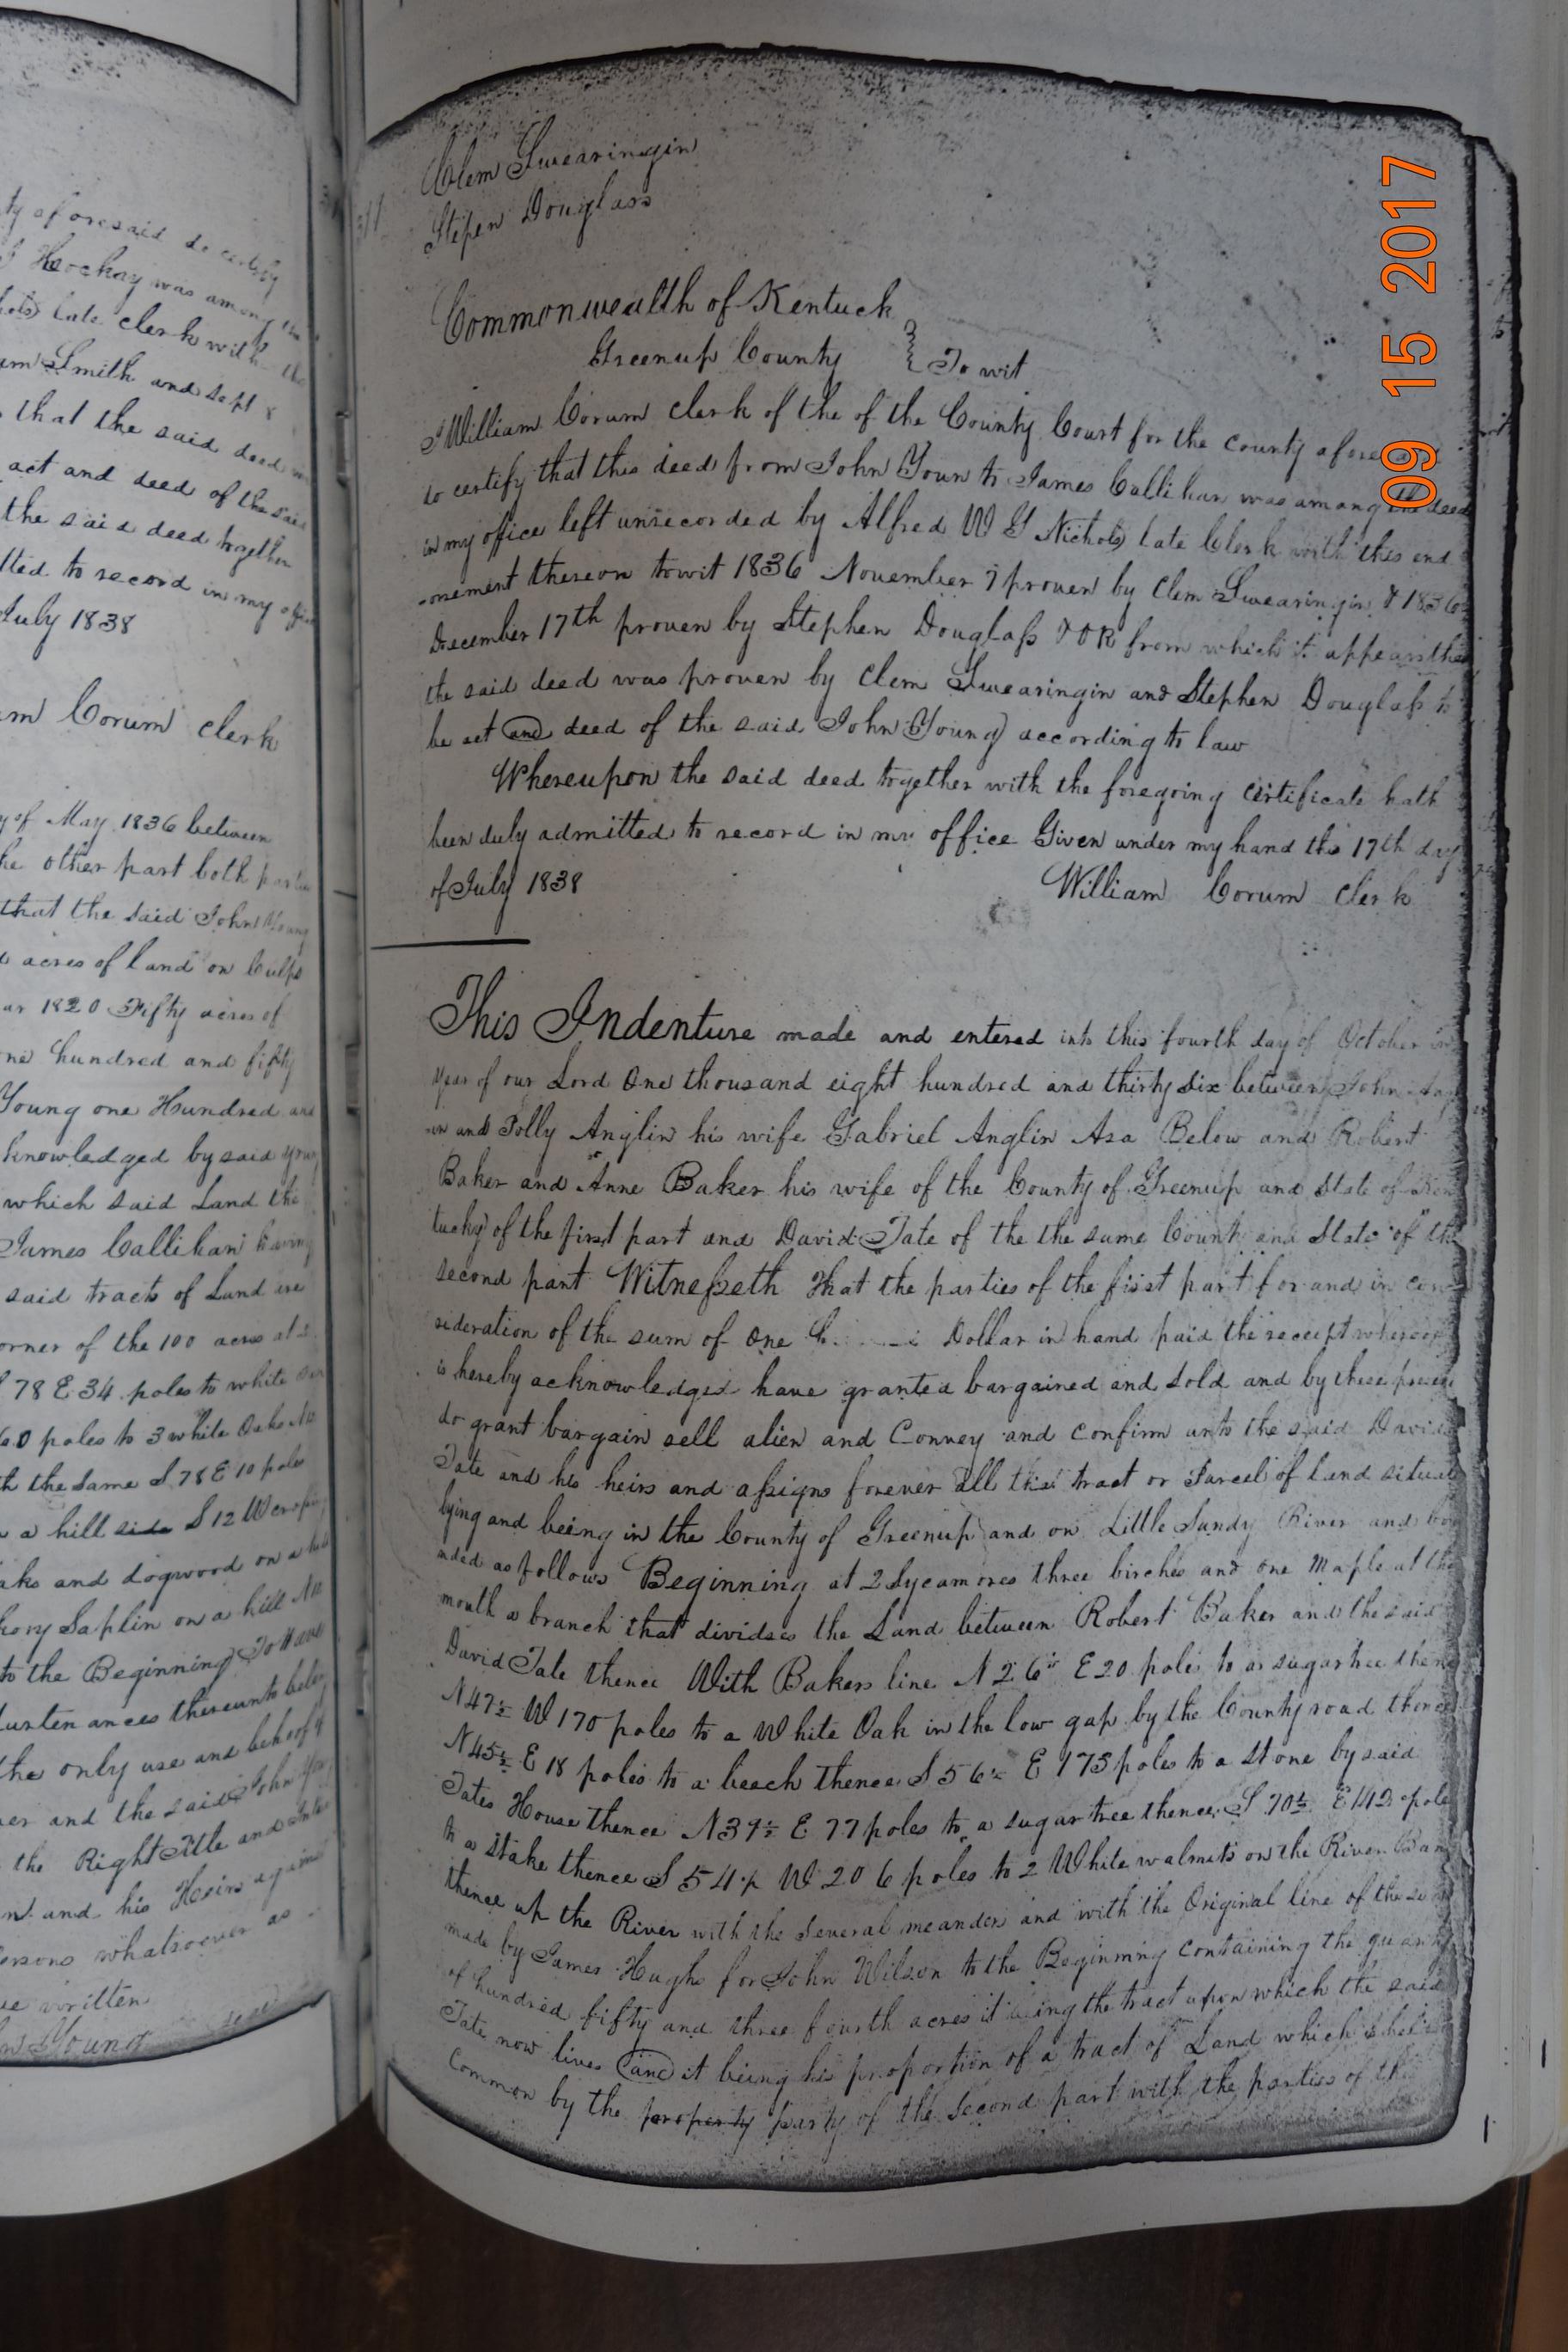 ty aforesaid do certify
Hockay was among the
late clerk with the
am Smith and Sept 8
that the said deed
act and deed of the said
the said deed together
tted to record in my office
July 1838
m Corum clerk
y of May 1836 between
he other part both parties
that the said John Young
acres of land on Culps
ar 1820 Fifty acres of
ne hundred and fifty
Young one Hundred and
knowledged by said Young
which said Land the
James Callihan having
said tracts of Land are
orner of the 100 acres
S 78 E 34 poles to white
60 poles to 3 white Oaks
h the Same S 78 E 10 poles
a hill side S 12 W
aks and dogwood on a hill
kory Saplin on a hill
to the Beginning To Have
urtenances thereunto
the only use and behoof of
er and the said John
the Right Title and
n and his Heirs against
ersons whatsoever as
ve written
n Young
Clem Swearingin
Stepen Douglass
Commonwealth of Kentuck
Greenup County } To wit
I William Corum Clerk of the of the County Court for the county aforesaid
do certify that this deed from John Youn to James Callihan was among the deed
in my office left unrecorded by Alfred W G Nichols late Clerk with this end
orsement thereon towit 1836 November 7 proven by Clem Swearingin & 1836
December 17th proven by Stephen Douglass & OR from which it appears that
the said deed was proven by Clem Swearingin and Stephen Douglass to
be act and deed of the said John Young according to law
Whereupon the said deed together with the foregoing certificate hath
been duly admitted to record in my office Given under my hand this 17th day
of July 1838 William Corum Clerk
This Indenture made and entered into this fourth day of October in
year of our Lord One thousand eight hundred and thirty six between John Ang
lin and Polly Anglin his wife Gabriel Anglin Asa Below and Robert
Baker and Anne Baker his wife of the County of Greenup and State of Ken
tucky of the first part and David Tate of the the same County and State of the
second part Witnesseth That the parties of the first part for and in con
sideration of the sum of One Dollar in hand paid the receipt whereof
is hereby acknowledged have granted bargained and Sold and by these presents
do grant bargain sell alien and Convey and confirm unto the said David
Tate and his heirs and assigns forever all that tract or Parcel of land situate
lying and being in the County of Greenup and on Little Sandy River and bou
nded as follows Beginning at 2 Sycamores three birches and one Maple at the
mouth a branch that divides the Land between Robert Baker and the said
David Tate thence With Bakers line N 26 E 20 poles to a sugartree thence
N 47½ W 170 poles to a White Oak in the low gap by the County road thence
N 45½ E 18 poles to a beech thence S 56½ E 175 poles to a Stone by said
Tates House thence N 37½ E 77 poles to a sugar tree thence S 70½ E 142 poles
to a stake thence S 54½ W 206 poles to 2 White walnuts on the River Bank
thence up the River with the several meanders and with the Original line of the
made by James Hughs for John Wilson to the Beginning containing the quantity
of hundred fifty and three fourth acres it being the tract upon which the said
Tate now lives and it being his proportion of a tract of Land which is held
Common by the property party of the second part with the parties of the
09 15 2017